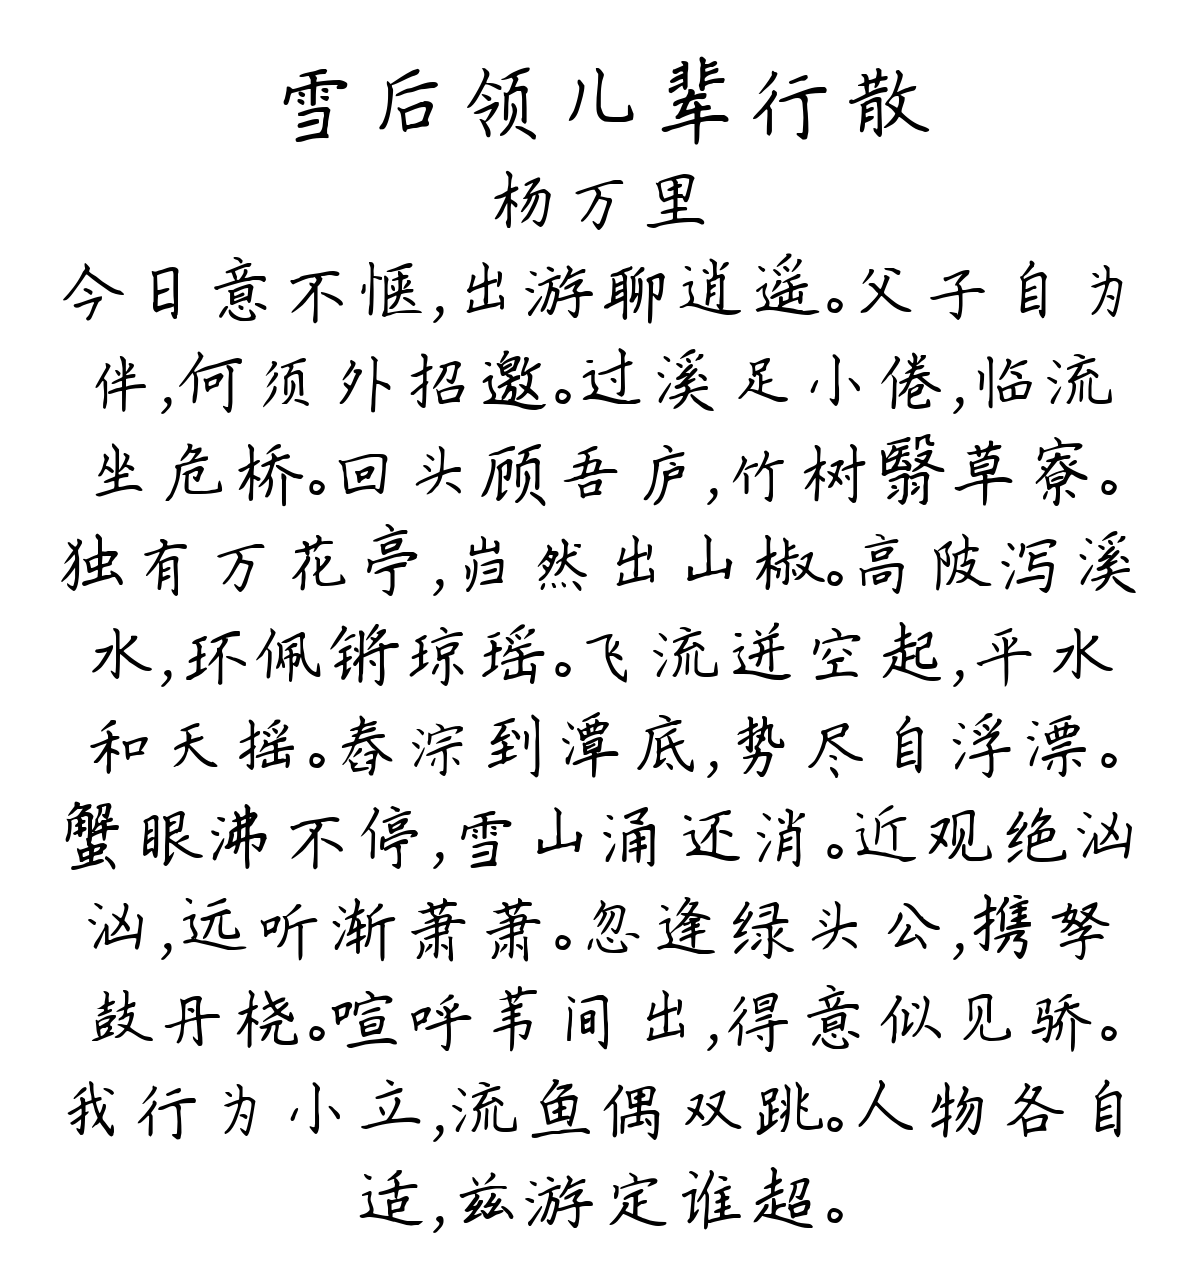 雪后领儿辈行散
杨万里
今日意不惬,出游聊逍遥。父子自为
伴,何须外招邀。过溪足小倦,临流
坐危桥。回头顾吾庐,竹树翳草寮。
独有万花亭,岿然出山椒。高陂泻溪
水,环佩锵琼瑶。飞流迸空起,平水
和天摇。舂淙到潭底,势尽自浮漂。
蟹眼沸不停,雪山涌还消。近观绝汹
汹,远听渐萧萧。忽逢绿头公,携孥
鼓丹桡。喧呼苇间出,得意似见骄。
我行为小立,流鱼偶双跳。人物各自
适,兹游定谁超。